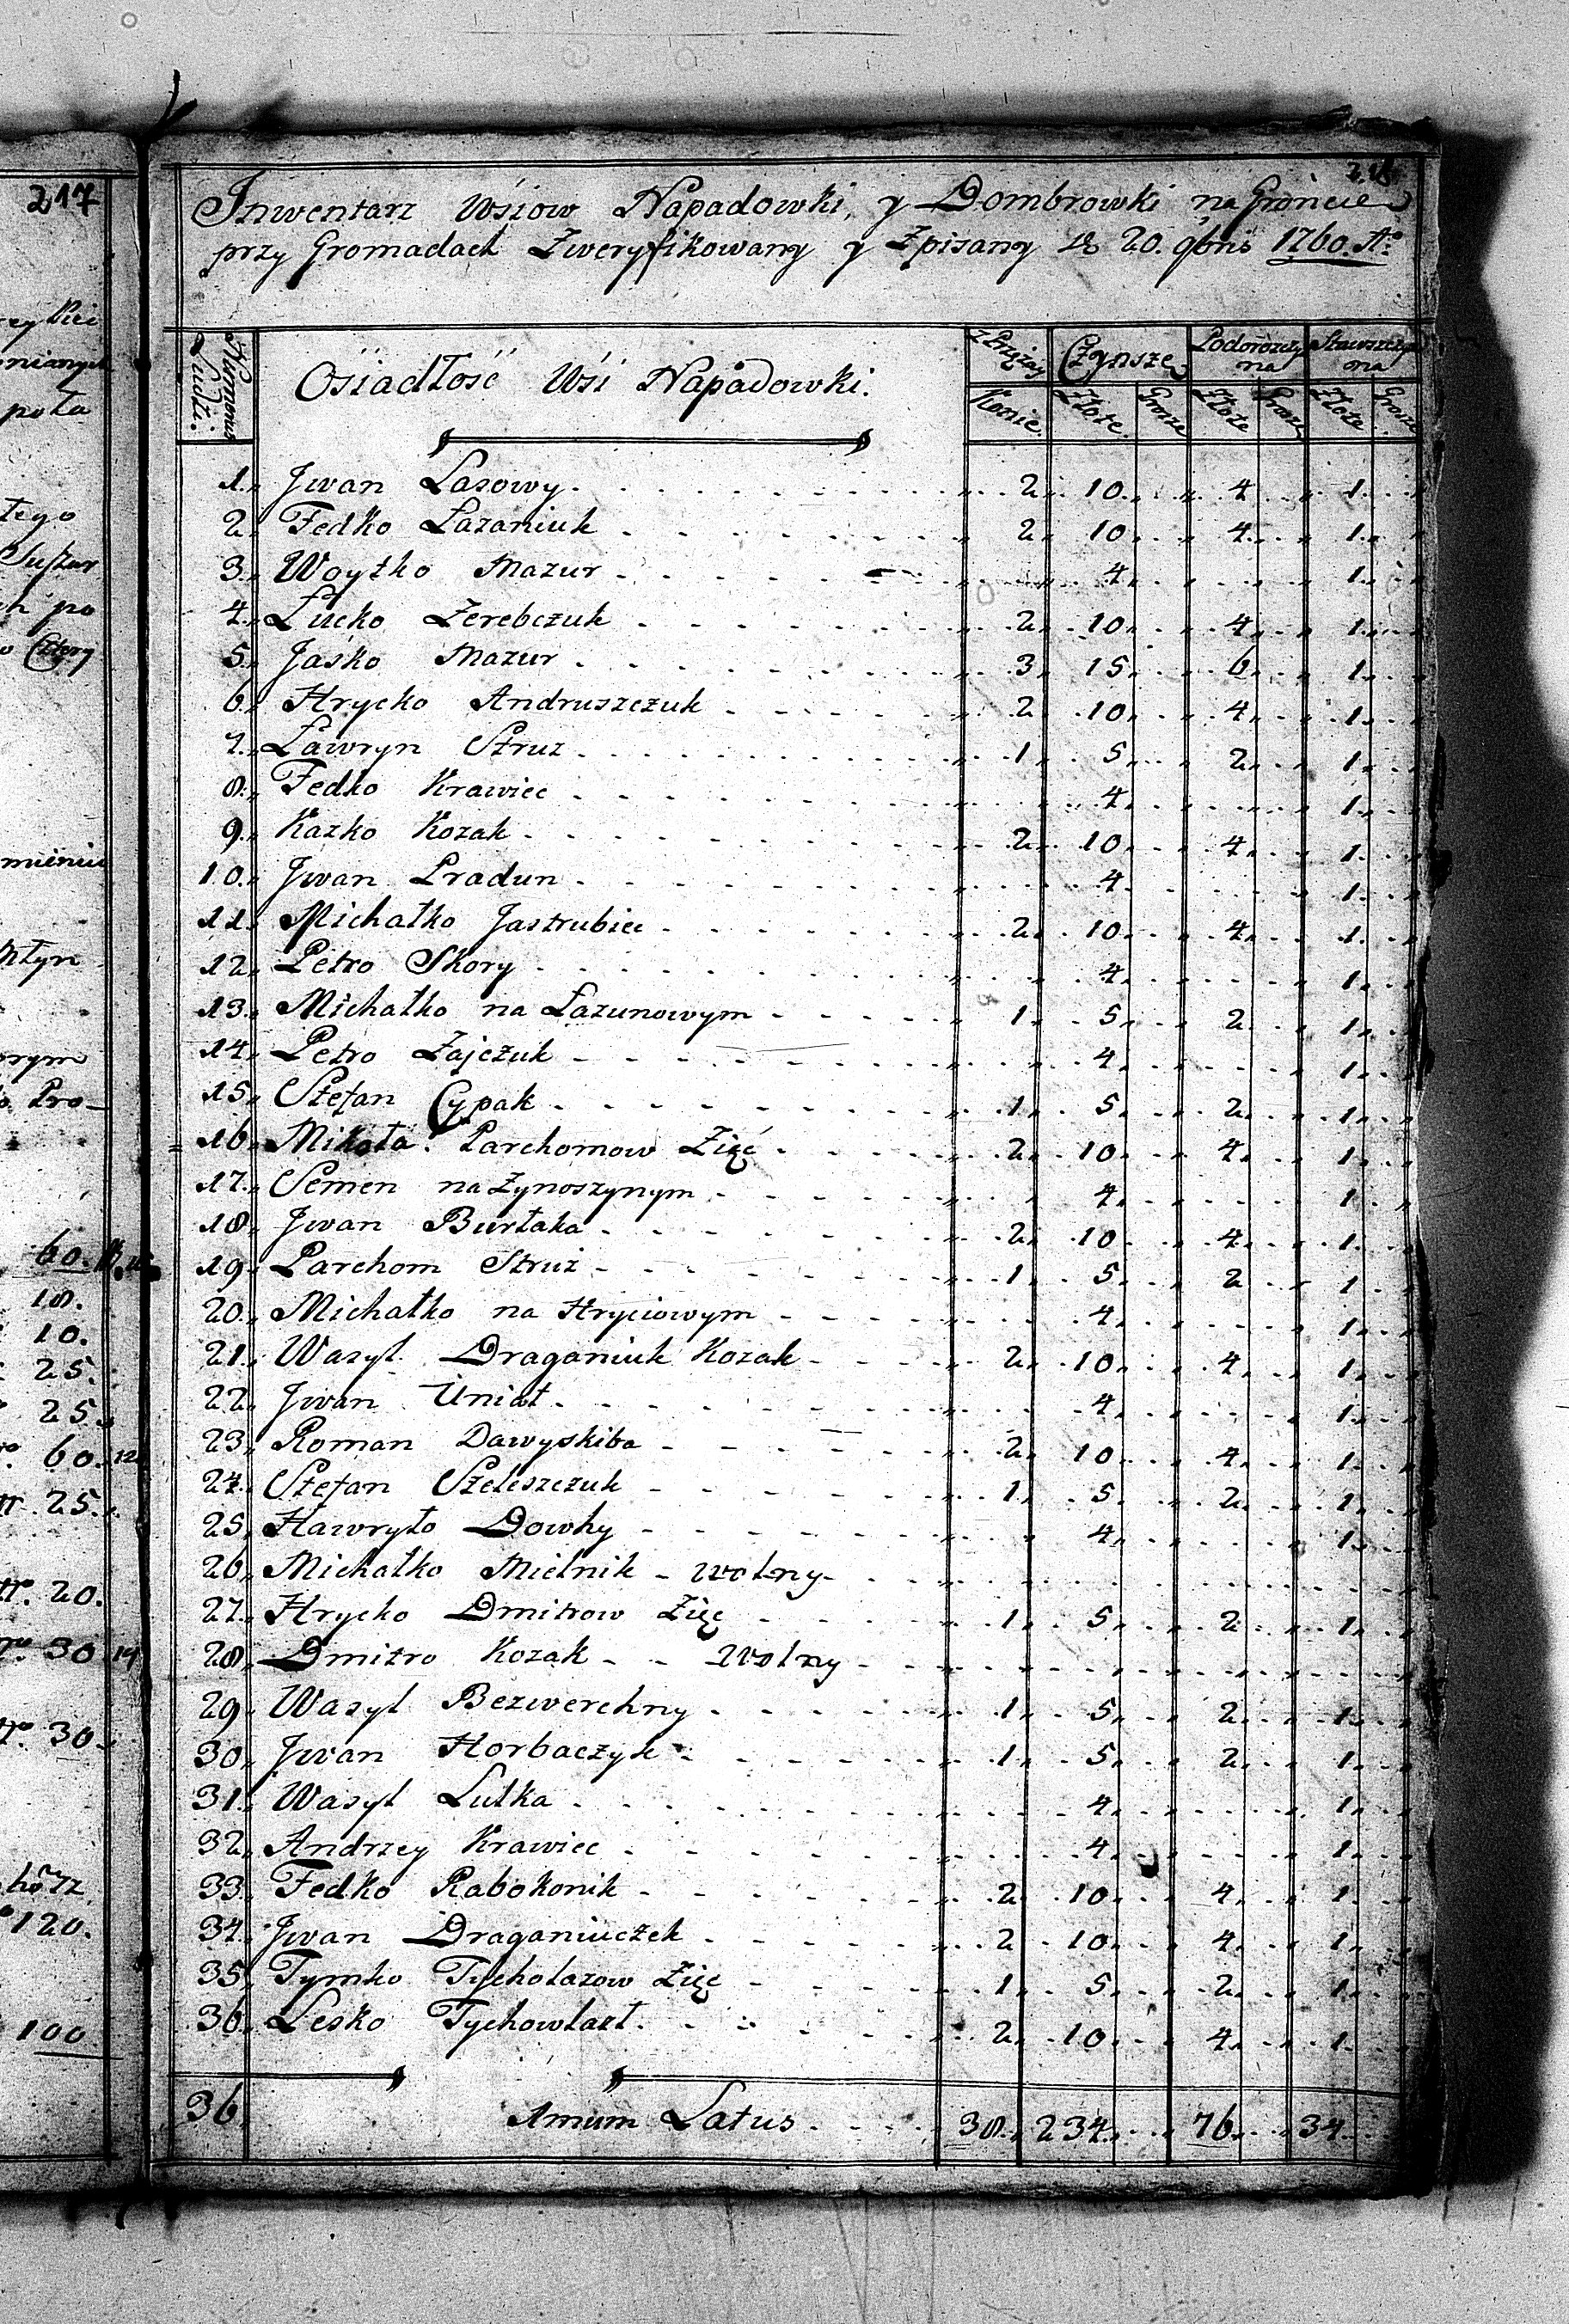 217
218
Inwentarz Wsiow Napadowki, y Dombrowki na Grońcie
przy Gromadach Zweryfikowany y Zpisany d. 20. 9bris 1760. Aº
Numerus Ludzi.
Osiadłość Wsi Napadowki.
z Przęzay Konie.
Czynsze Złote. Grosze
Podorozczyzna Złote Grosze
Złote Grosze
1. Jwan Lasowy 2 10 4 1
2. Fedko Łazaniuk 2 10 4 1
3. Woytko Mazur 4 1
4. Łucko Zerebczuk 2 10 4 1
5. Jaśko Mazur 3 15 6 1
6. Hrycko Andruszczuk 2 10 4 1
7. Ławryn Struz 1 5 2 1
8. Fedko Krawiec 4 1
9. Kazko Kozak 2 10 4 1
10. Jwan Pradun 4 1
11. Michałko Jastrubiec 2 10 4 1
12. Petro Skory 4 1
13. Michałko na Łazunowym 1 5 2 1
14. Petro Zajczuk 4 1
15. Stefan Cypak 1 5 2 1
16. Mikoła Parchomow Zięć 2 10 4 1
17. Semen na Zynoszynym 4 1
18. Jwan Burłaka 2 10 4 1
19. Parchom Struż 1 5 2 1
20. Michałko na Hryciowym 4 1
21. Wasyl Draganiuk Kozak 2 10 4 1
22. Jwan Uniat 4 1
23. Roman Dawyskiba 2 10 4 1
24. Stefan Szeleszczuk 1 5 2 1
25. Hawryło Dowhy 4 1
26. Michałko Mielnik - wolny
27. Hrycko Dmitrow Zięc 1 5 2 1
28. Dmitro Kozak - - Wolny
29. Wasyl Bezwerchny 1 5 2 1
30. Jwan Horbaczyk 1 5 2 1
31. Wasyl Lulka 4 1
32. Andrzey Krawiec 4 1
33. Fedko Rabokonik 2 10 4 1
34. Jwan Draganiuczek 2 10 4 1
35. Tymko Tycholazow Zięc 1 5 2 1
36. Lesko Tychowlazł 2 10 4 1
36. Latus 38 234 76 34